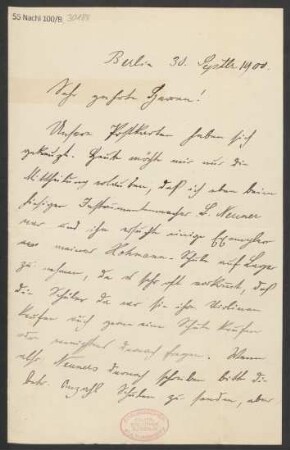 55 Nachl 100/B,
Berlin 30. Septbr 1900.
Sehr geehrte Herren!
Unsere Postkarten haben sich
gekreuzt. Heute möchte mir nur die
Mittheilung erlauben, daß ich eben beim
hiesigen Instrumentenmacher L. Neuner
war und ihn ersuchte einige Exemplare
von meiner Hohmann-Schule auf Lager
zu nehmen, da es sehr oft vorkommt, daß
die Schüler da wo sie ihre Violinen
kaufen auch gerne eine Schule kaufen
oder wenigstens darnach fragen. Wenn
also Neuners darnach schreiben bitte die
betr. Anzahl Schulen zu senden, aber